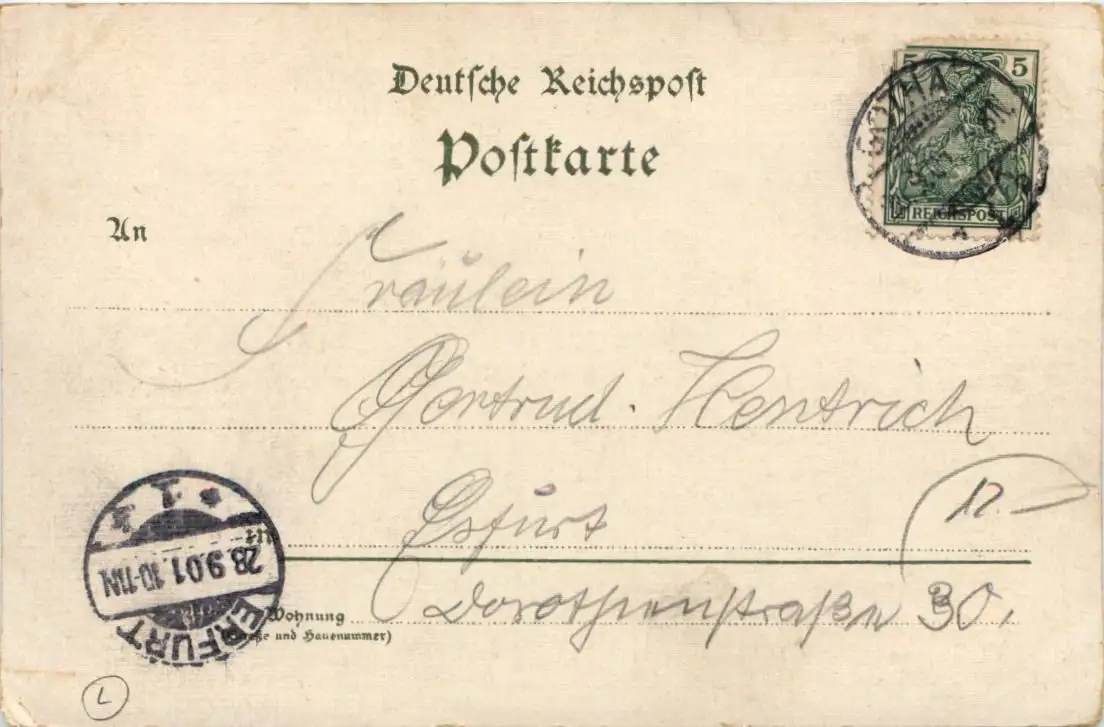 Deutsche Reichspost
Postkarte
5
GOTHA
REICHSPOST
An
Fräulein
Gertrud Hentrich
in Erfurt
Wohnung
(Straße und Hausnummer)
Dorotheenstraße 30.
ERFURT
28.9.01.10-11N.
* 1
L